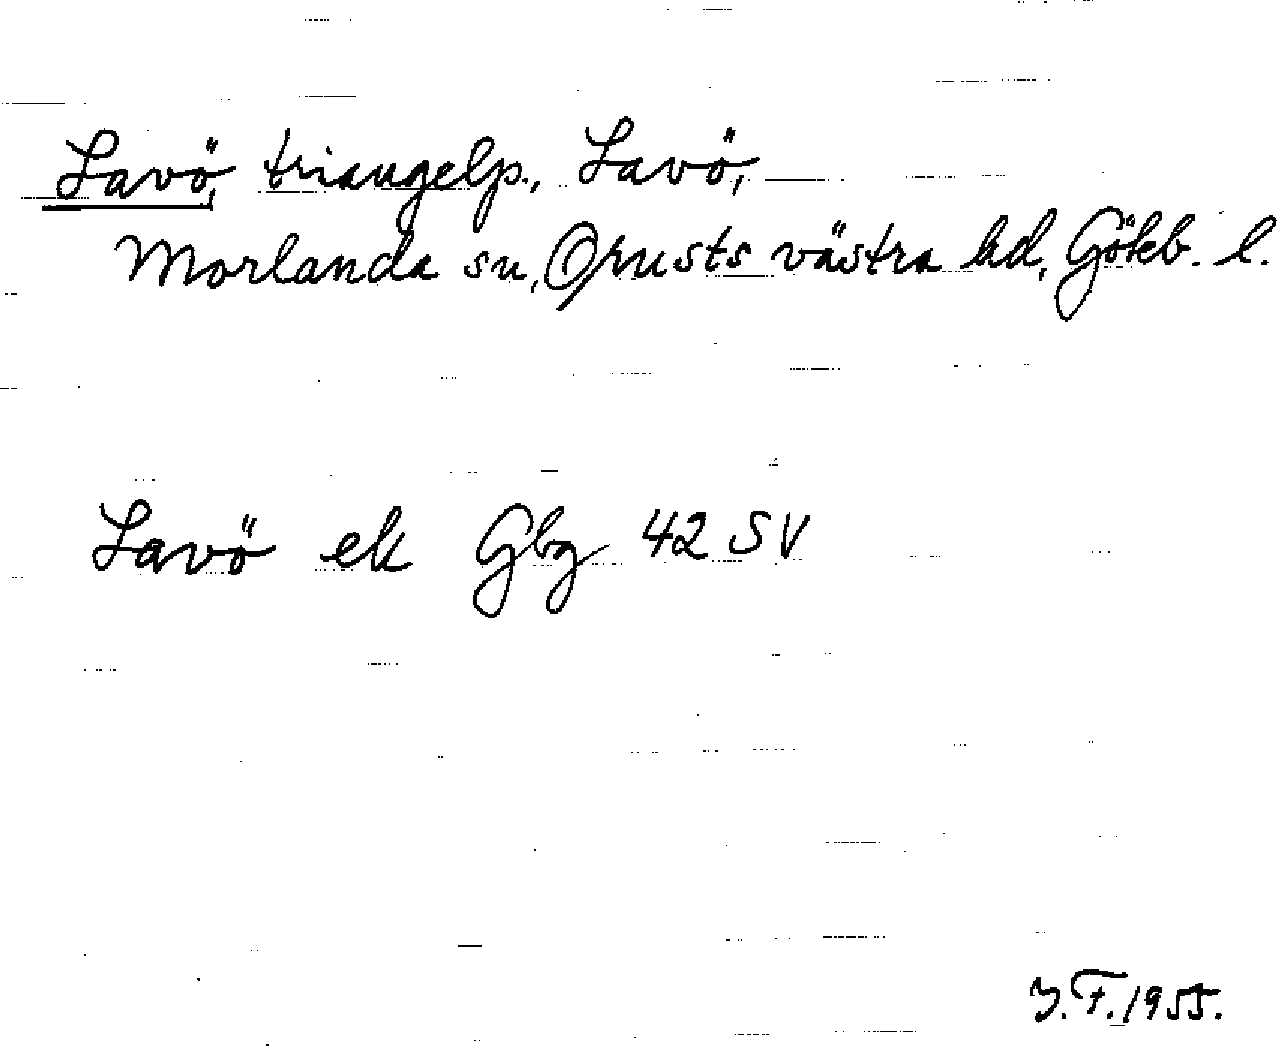 Lavö, triangelp., Lavö,
Morlanda sn, Orusts västra hd, Göteb. l.
Lavö ek Gbg 42 SV
Y.F. 1955.